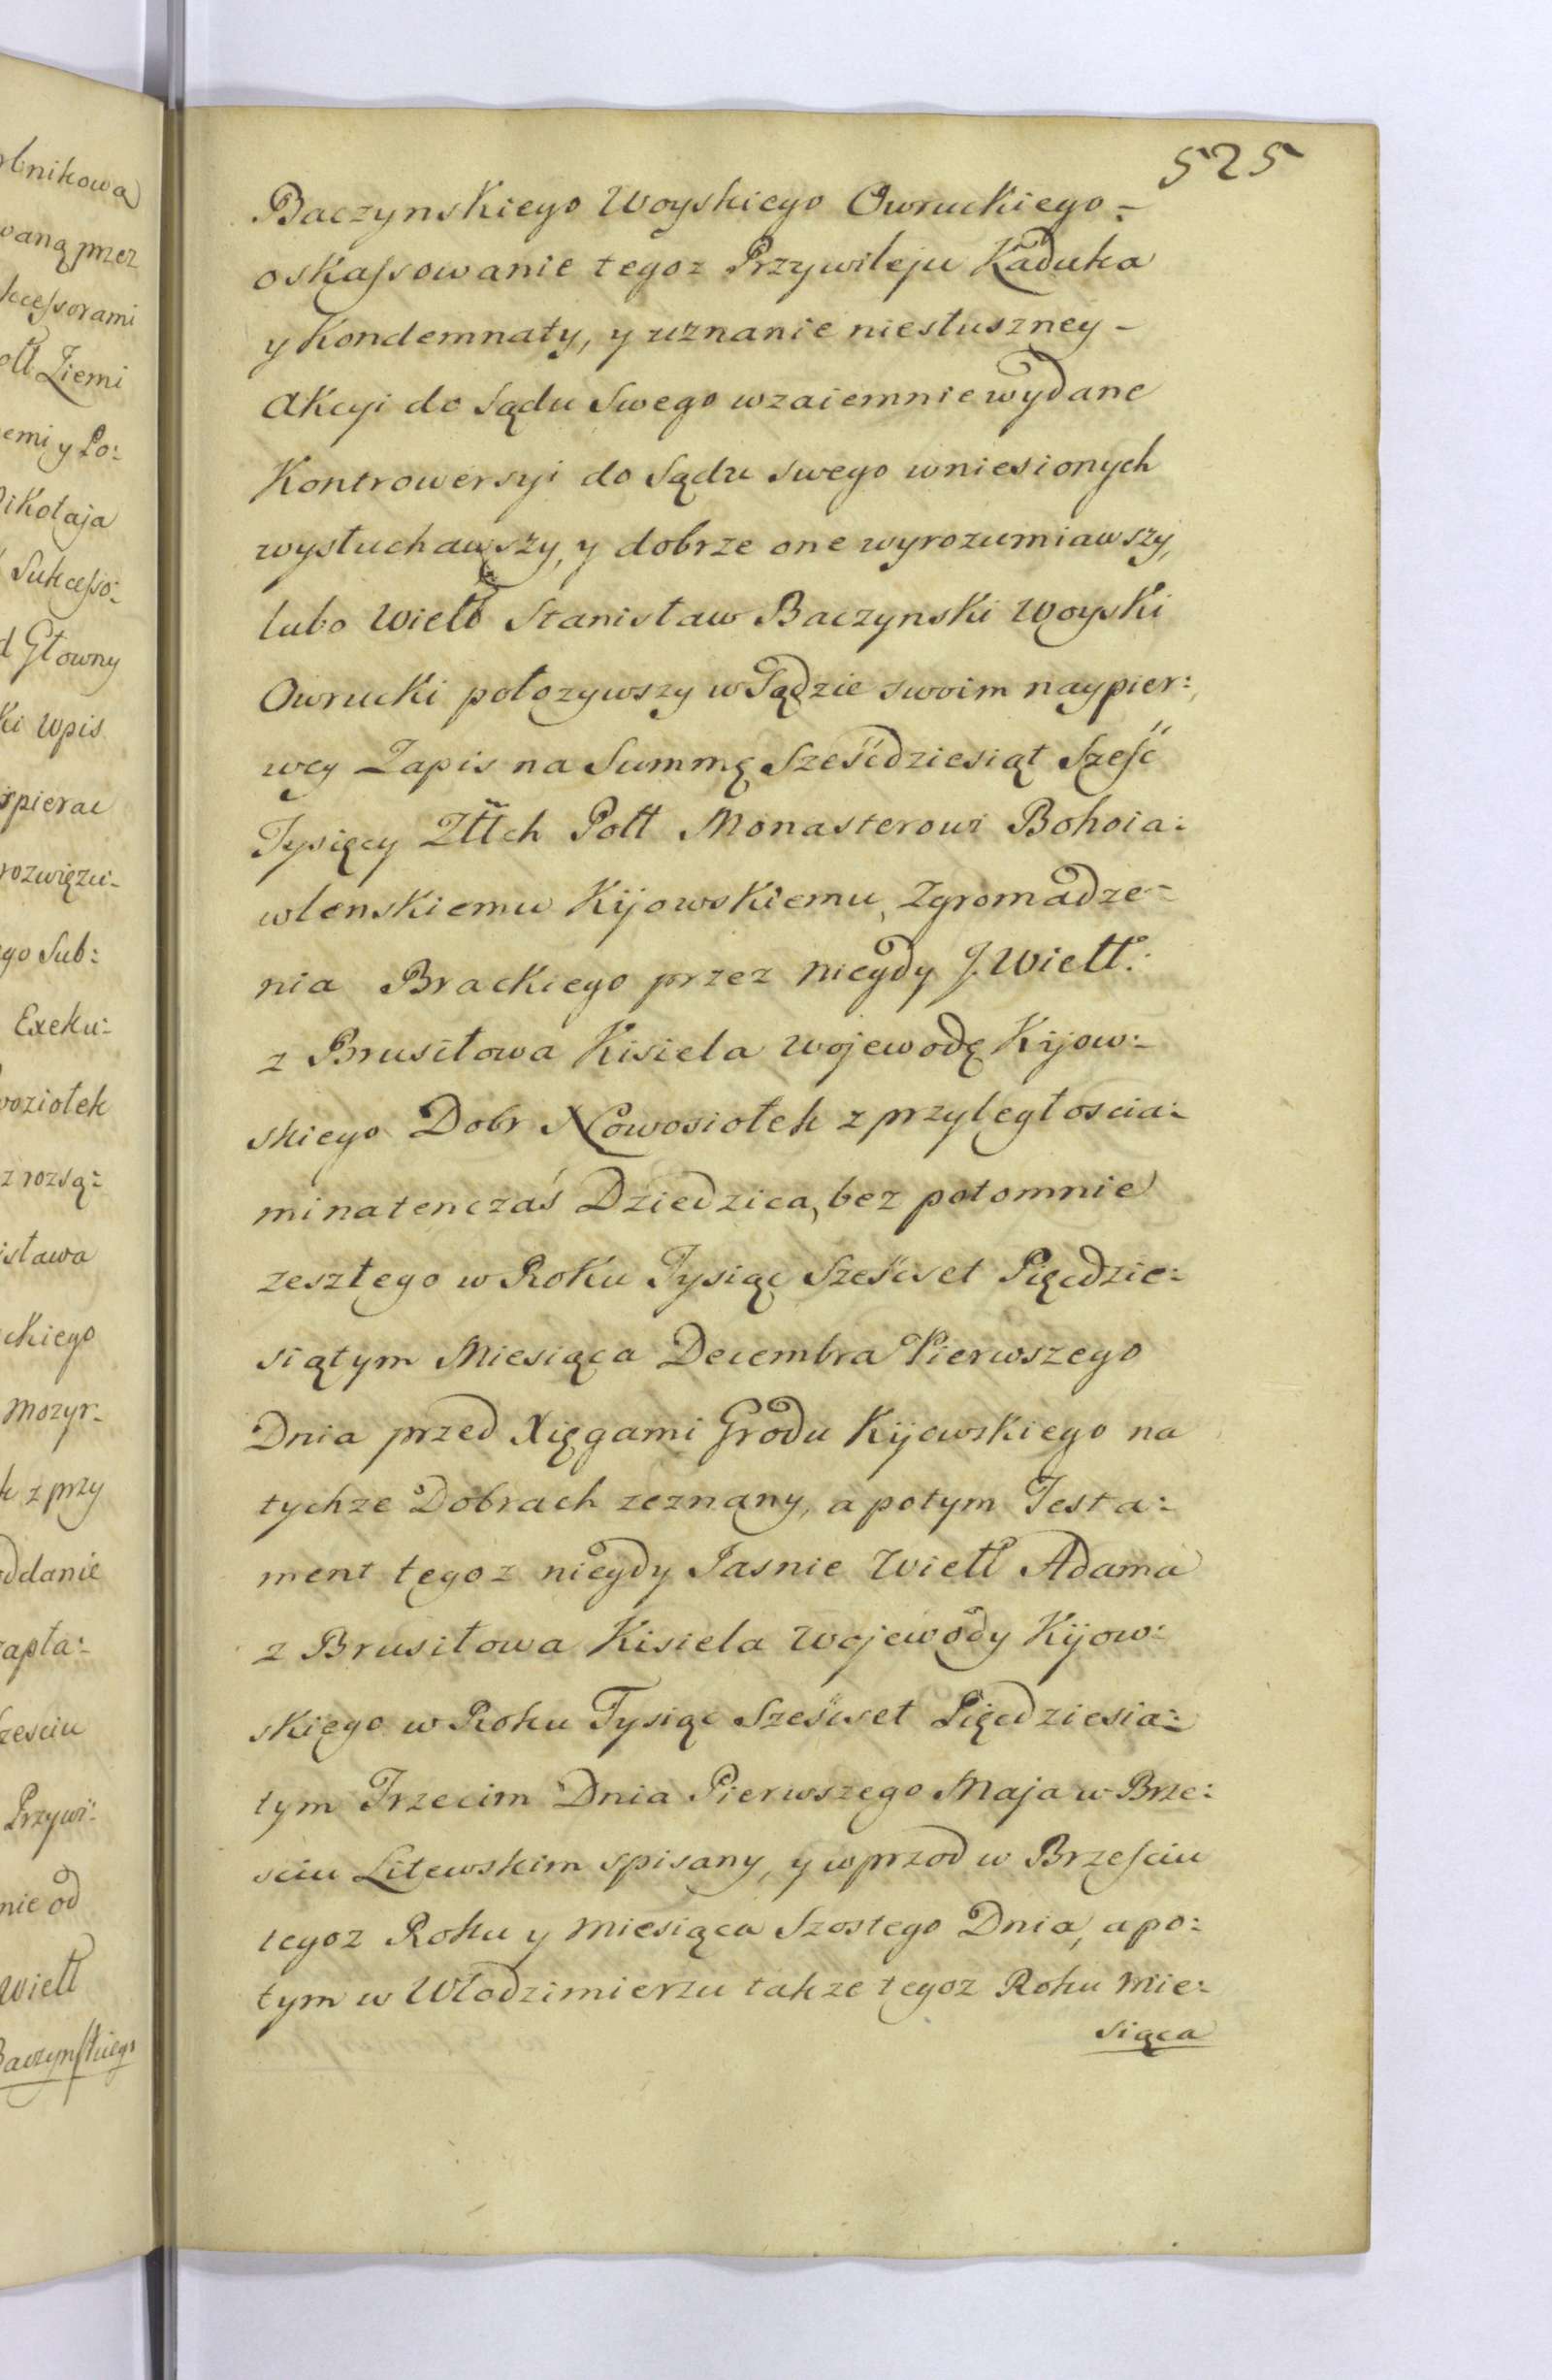 525
Baczynskiego Woyskiego Owruckiego -
o skassowanie tegoz Przywileju Kaduka
y Kondemnaty, y uznanie niesłuszney -
Akcyi do Sądu Swego wzaiemnie wydane
Kontrowersyi do Sądu swego wniesionych
wysłuchawszy, y dobrze one wyrozumiawszy,
lubo Wiell Stanisław Baczynski Woyski
Owrucki położywszy w Sądzie swoim naypier:
wey Zapis na Summę Sześćdziesiąt Sześć
Tysięcy Złłch Poll Monasterowi Bohoia:
wlenskiemu Kijowskiemu, Zgromadze-
nia Brackiego przez niegdy J. Wiell:
z Brusiłowa Kisiela Wojewodę Kijow:
skiego Dobr Nowosiołek z przyległoscia:
mi natenczaś Dziedzica, bez potomnie
zeszłego w Roku Tysiąc Sześćset Pięcdzie:
siątym Miesiąca Decembra Pierwszego
Dnia przed Xięgami Grodu Kijowskiego na
tychze Dobrach zeznany, a potym Testa:
ment tegoz niegdy Jasnie Wiell Adama
z Brusiłowa Kisiela Wojewody Kijow:
skiego w Roku Tysiąc Sześćset Pięcdziesia:
tym Trzecim Dnia Pierwszego Maja w Brze:
sciu Litewskim spisany, y wprzod w Brzesciu
tegoz Roku y Miesiąca Szostego Dnia, a po:
tym w Włodzimierzu takze tegoz Roku Mie:
siąca
lnikowa
waną przez
kcessorami
oll Ziemi
emi y Po:
ikołaja
Sukcesso:
d Głowny
ki Wpis
spierac
rozwięzu-
go Sub:
Exeku:
woziołek
z rozsą:
isława
ckiego
Mozyr:
k z przy
oddanie
zapła:
zesciu
Przywi:
nie od
Wiell
Baczynskiego